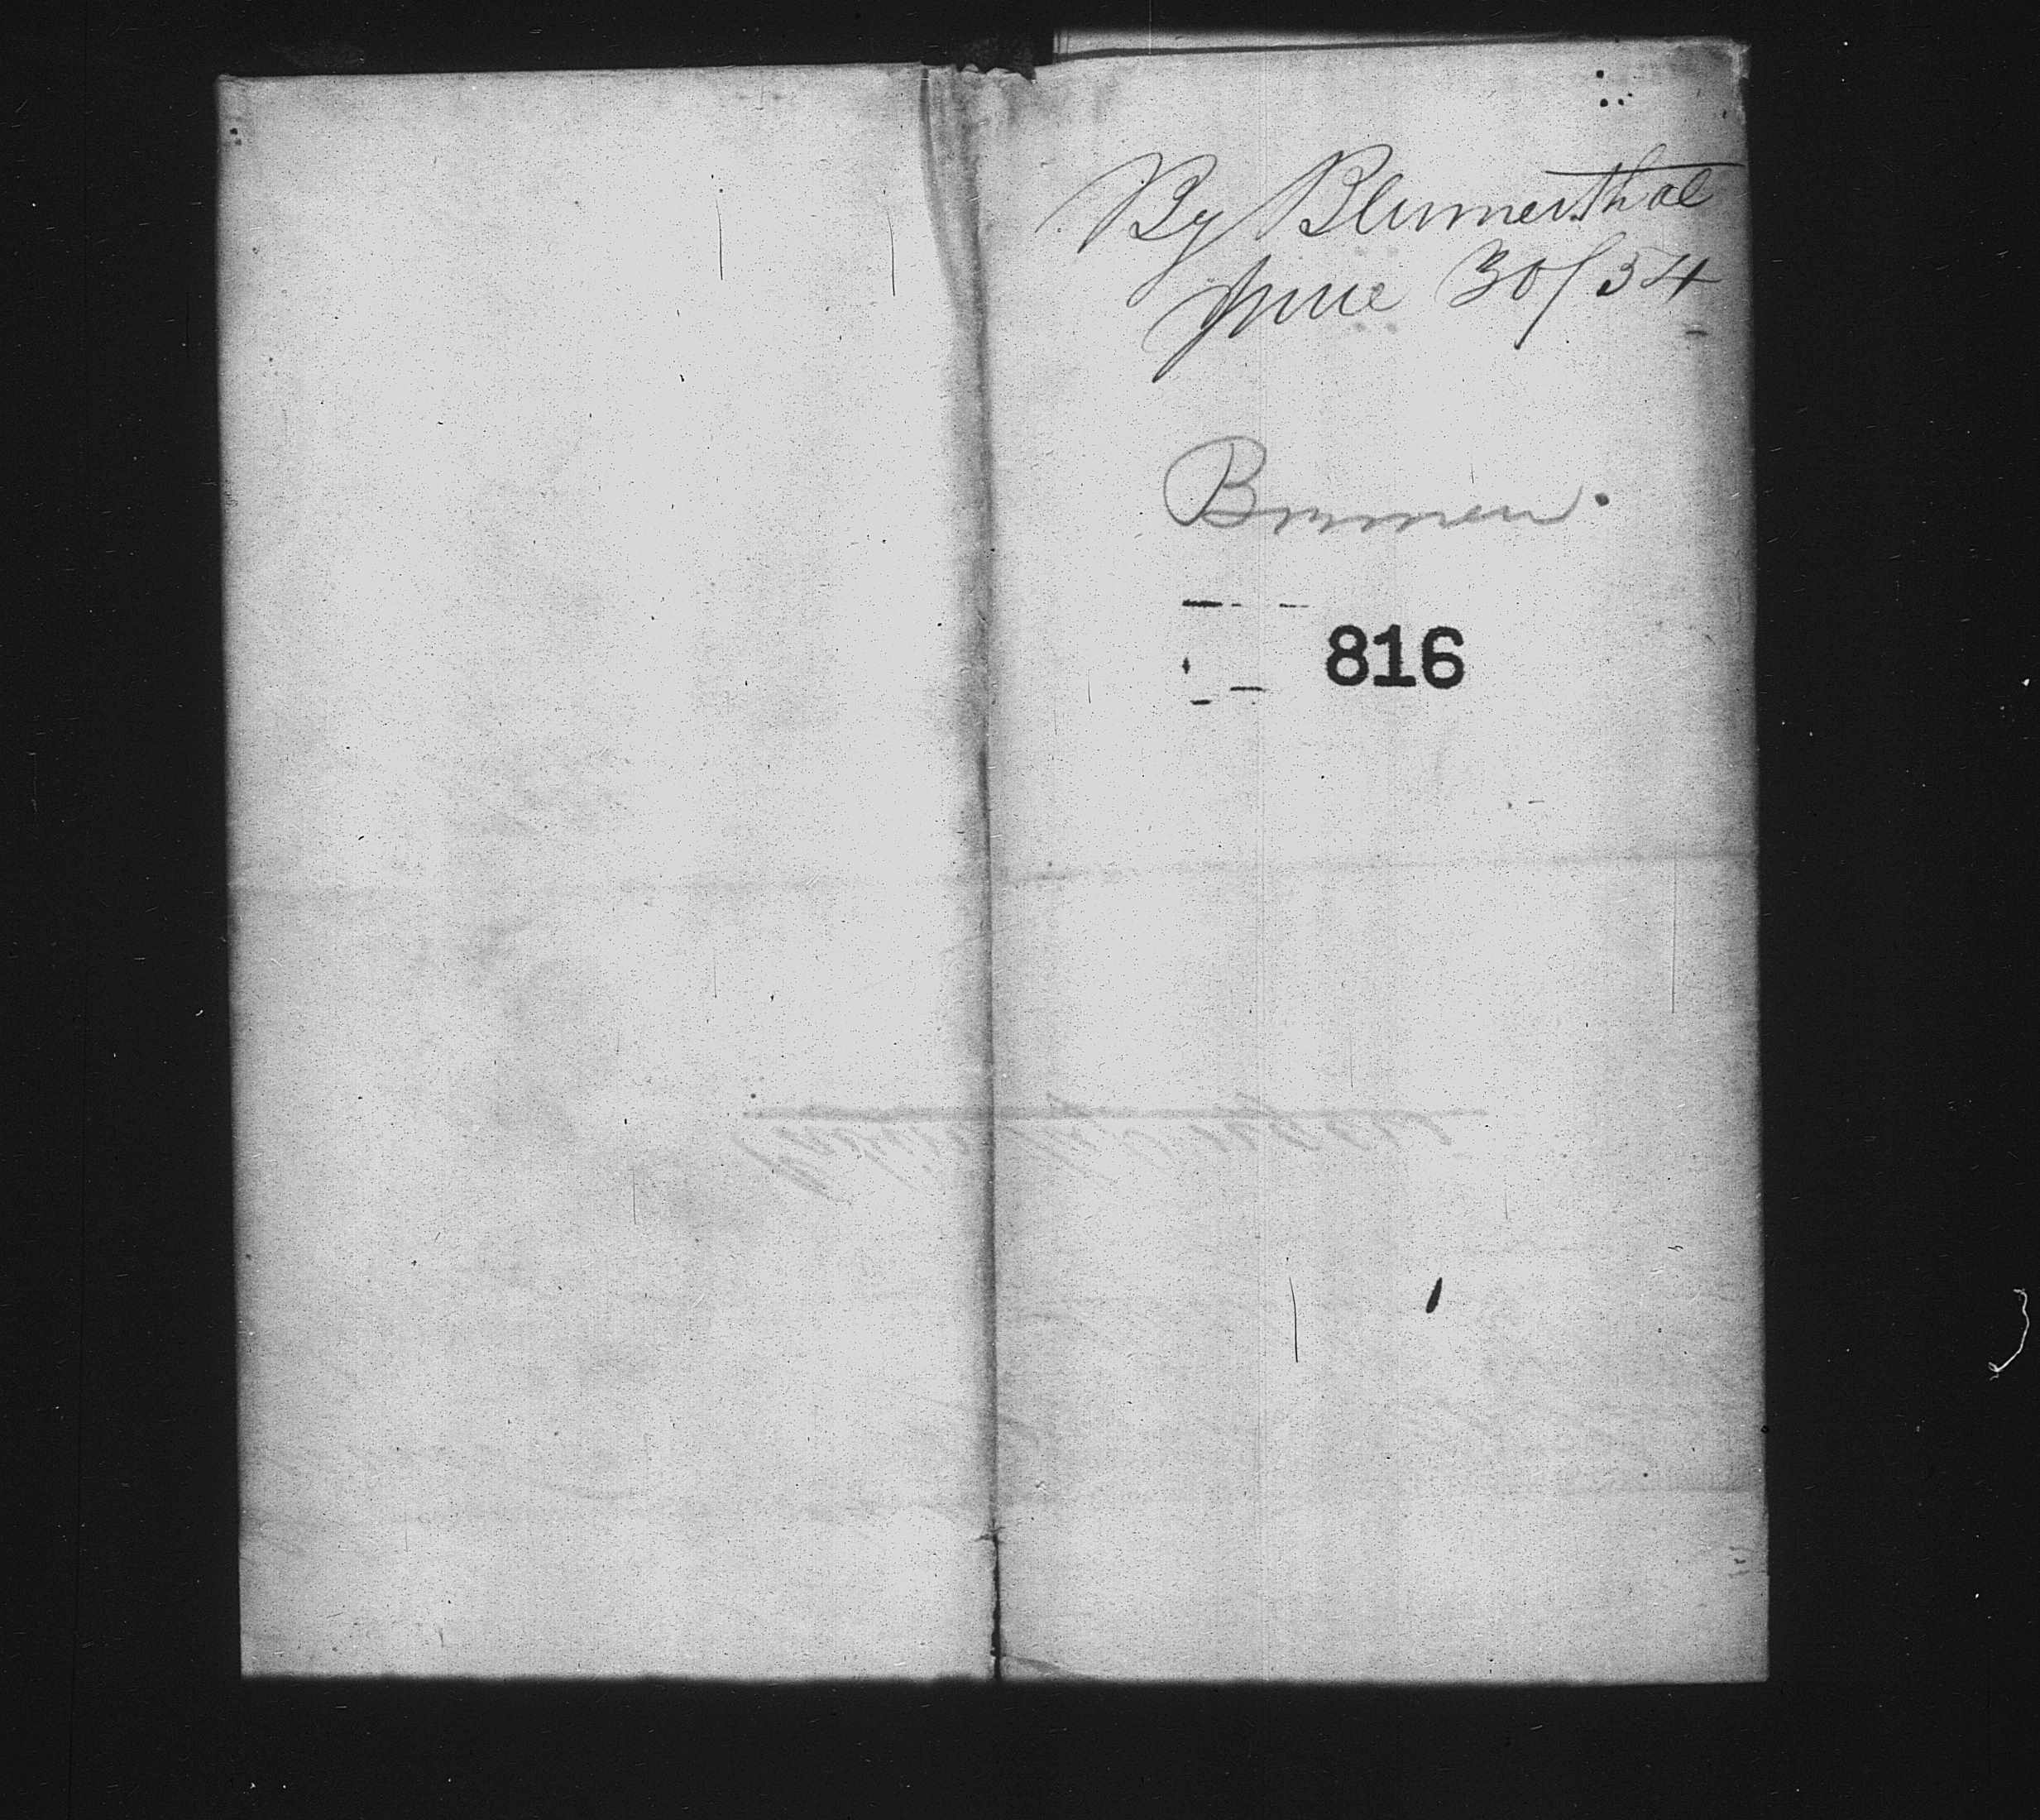 By Blumenthal
June 30/54
Bremen.
816